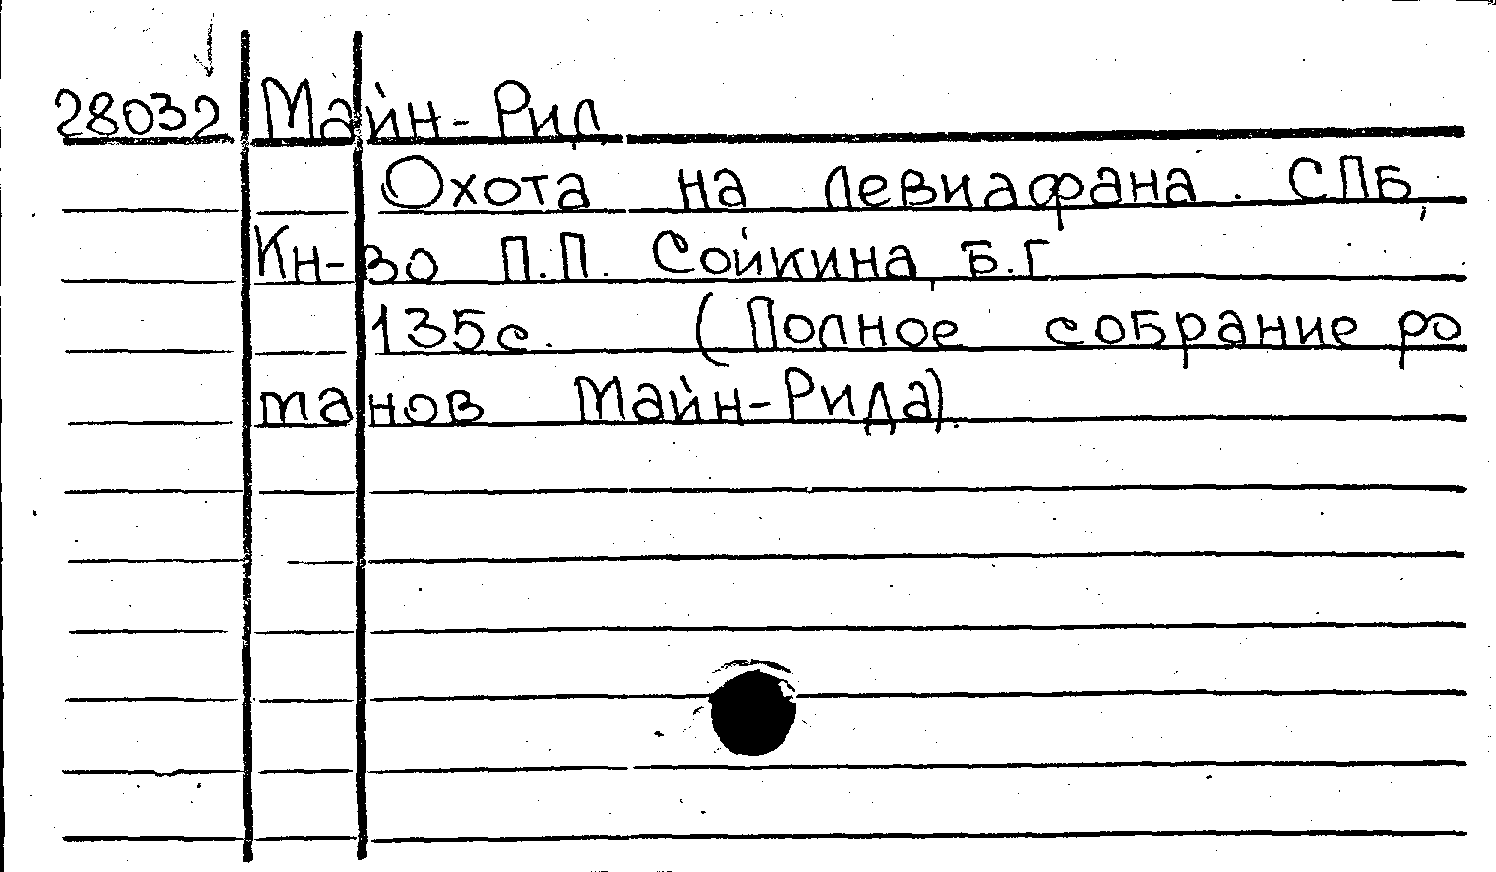 28032 Майн-Рид
Охота на левиафана. СПБ,
Кн-во П.П. Сойкина, Б.Г
135с. (Полное собрание ро
манов Майн-Рида).